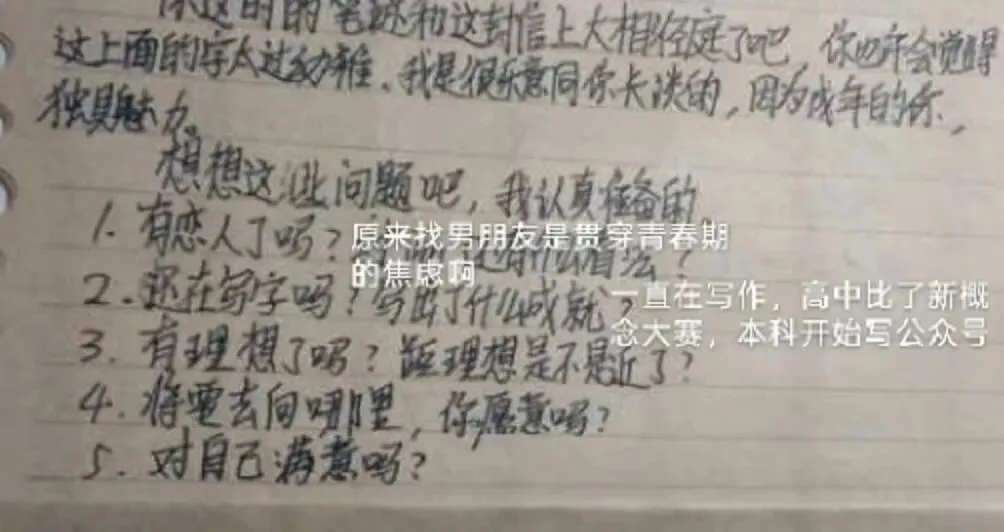 你这时的笔迹和这封信上大相径庭了吧,你也许会觉得
这上面的字太过幼稚。我是很乐意同你长谈的,因为成年的你,
独具魅力。
想想这些问题吧,我认真准备的
1. 有恋人了吗?
原来找男朋友是贯穿青春期
的焦虑啊
2. 还在写字吗?写出了什么成就?
一直在写作,高中比了新概
念大赛,本科开始写公众号
3. 有理想了吗?距理想是不是近了?
4. 将要去向哪里,你愿意吗?
5. 对自己满意吗?